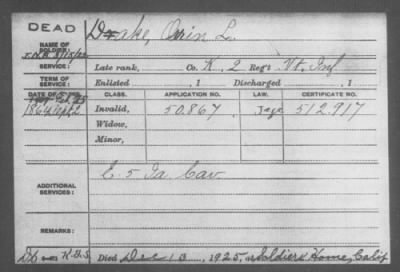 DEAD
Drake, Orin L.
NAME OF SOLDIER:
SERVICE: Late rank, Co. K, 2 Reg't Vt. Inf
TERM OF SERVICE: Enlisted , 1 Discharged , 1
DATE OF FILING. CLASS. APPLICATION NO. LAW. CERTIFICATE NO.
1864 Sept 2 Invalid, 50.867 512.917
Widow,
Minor,
ADDITIONAL SERVICES: E. 5 Ia. Cav
REMARKS:
Died Dec 13, 1925, at Soldiers Home, Calif